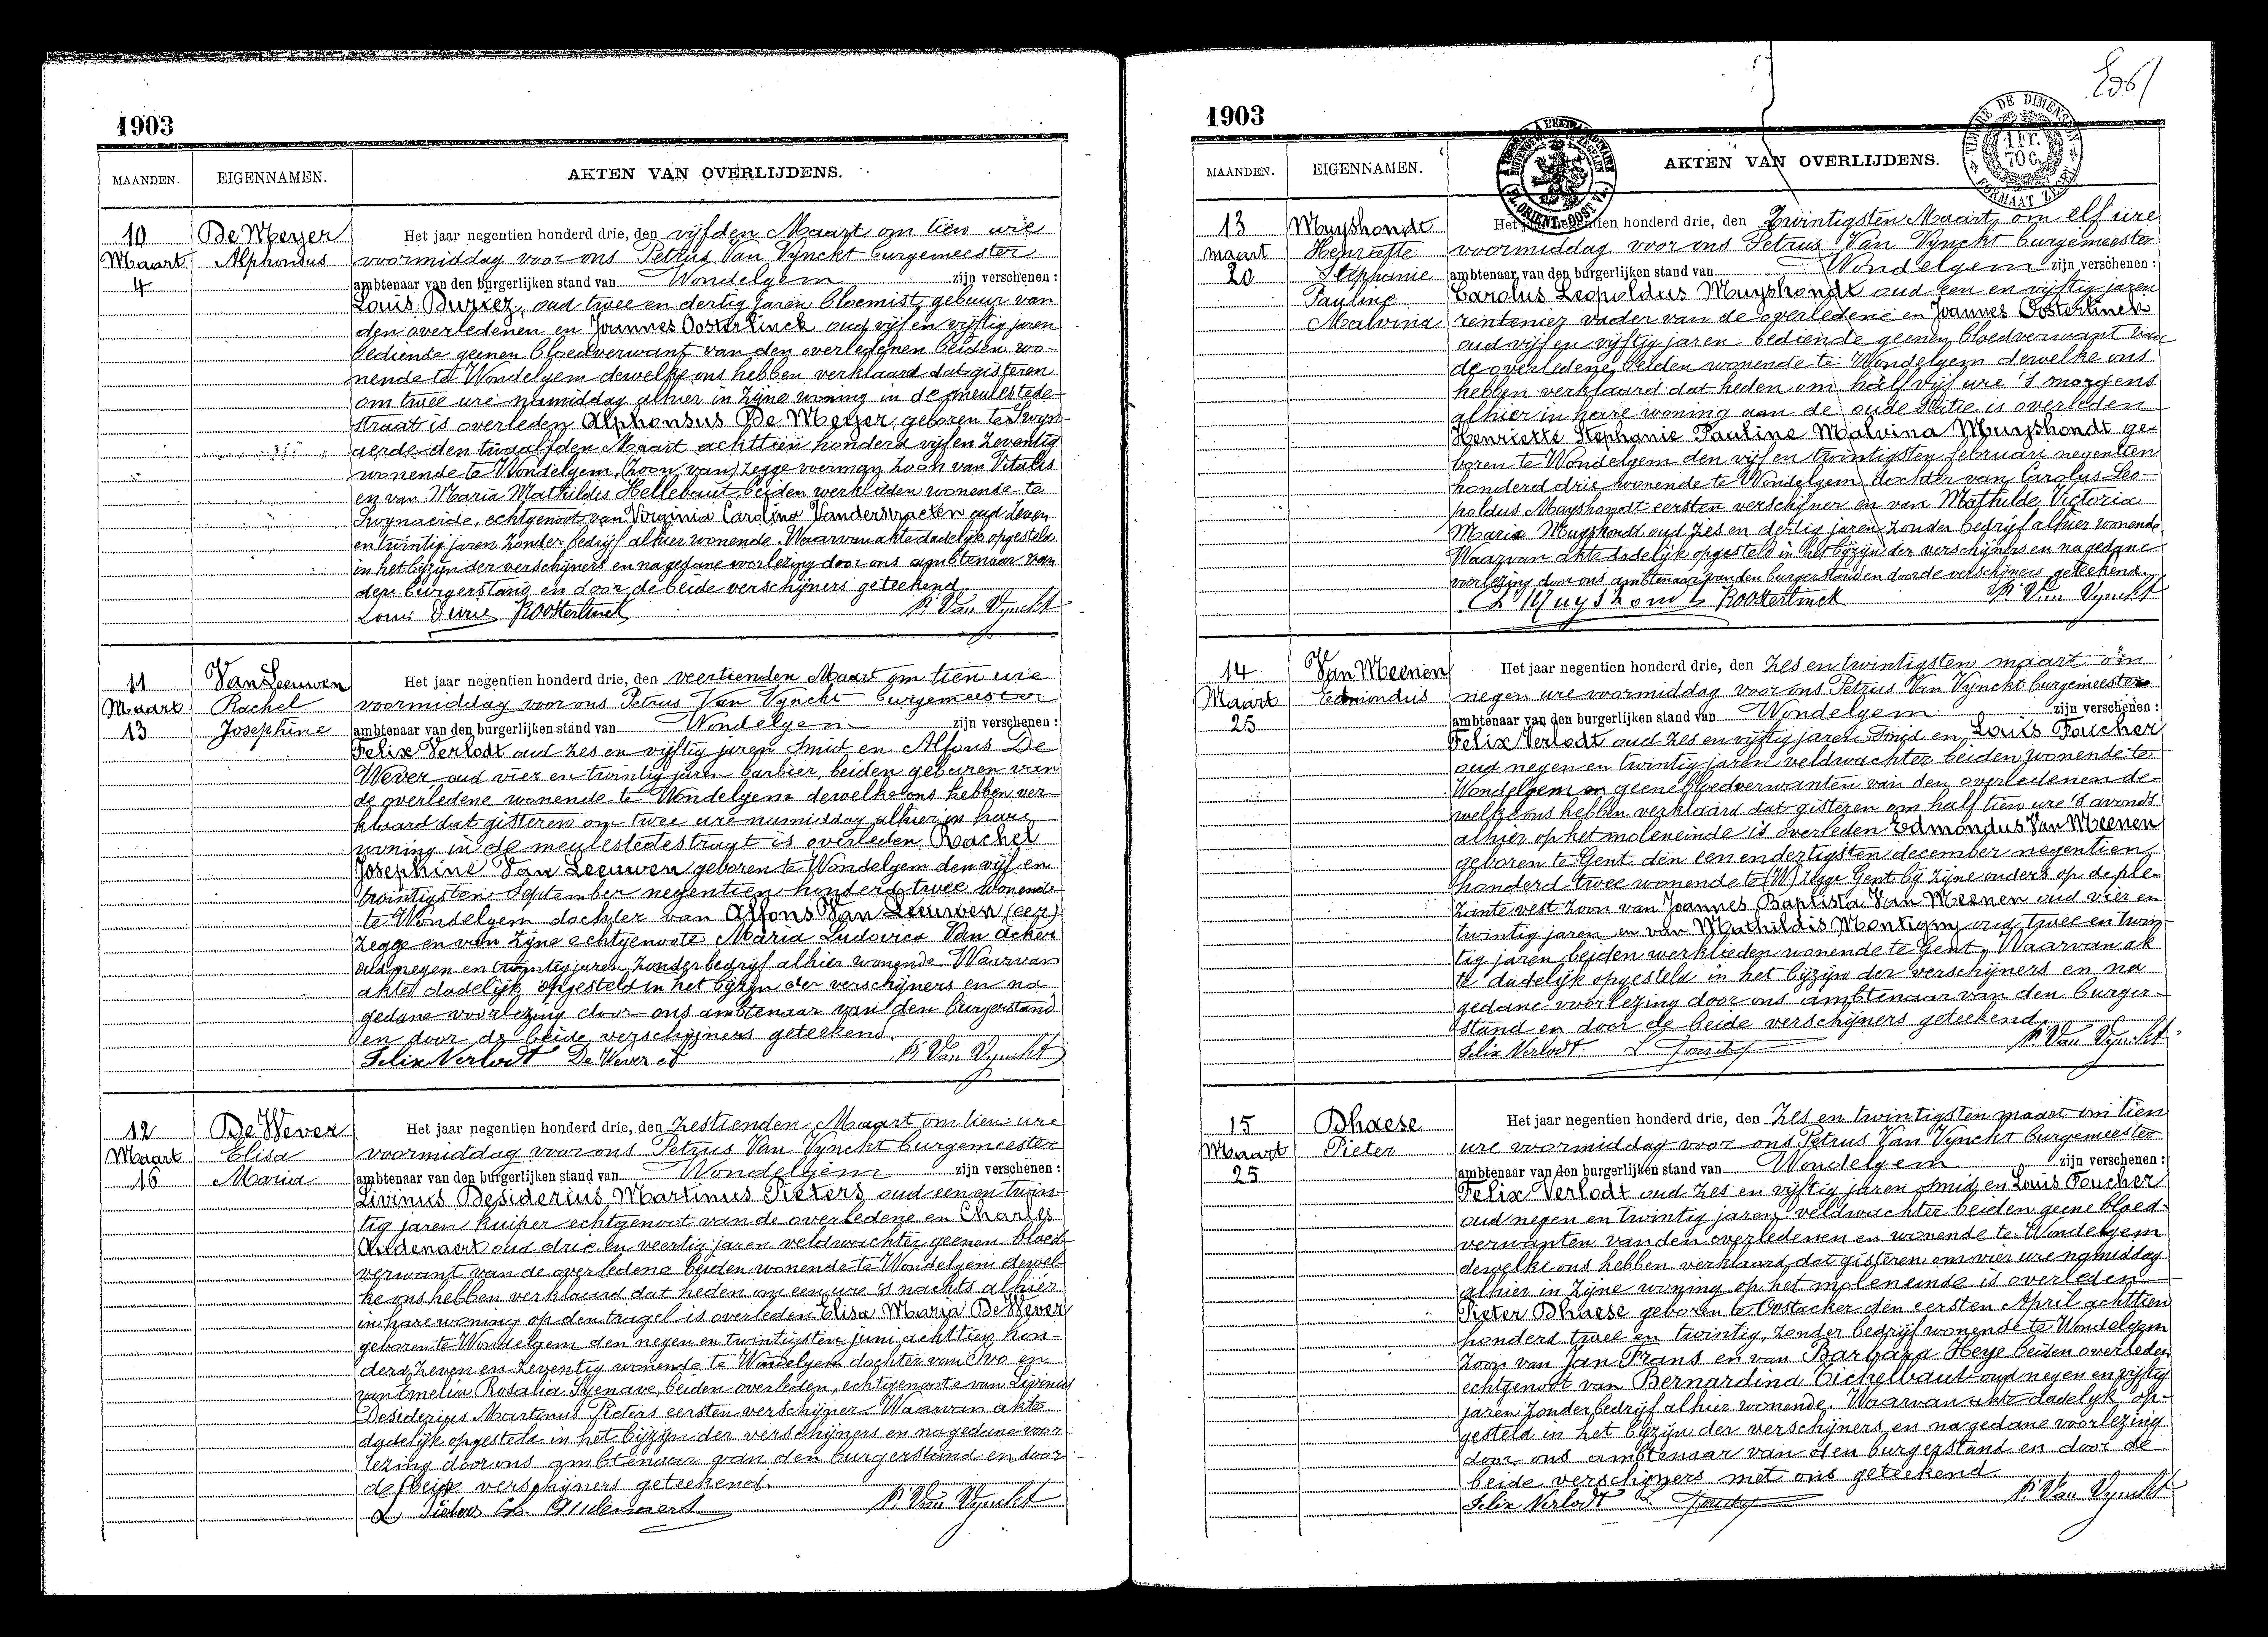 1903
MAANDEN. EIGENNAMEN. AKTEN VAN OVERLIJDENS.
10
Maart
4
De Meyer
Alphonsus
Het jaar negentien honderd drie, den vijfden Maart om tien ure
voormiddag voor ons Petrus Van Vynckt burgemeester
ambtenaar van den burgerlijken stand van Wondelgem zijn verschenen :
Louis oud twee en dertig jaren, bloemist, gebuur van
den overledenen en Joannes Oosterlinck oud vijf en vijftig jaren
bediende geenen bloedverwant van den overledenen beiden wo-
nende te Wondelgem dewelke ons hebben verklaard dat gisteren
om twee ure namiddag alhier in zijne woning in de meulestede-
straat is overleden Alphonsus De Meyer, geboren te Swyn-
aerde den twaalfden Maart achttien honderd vijf en zeventig
wonende te Wondelgem, (zoon van) zegge voerman zoon van Vitalis
en van Maria Mathildis Hellebaut, beiden werklieden wonende te
Swynaerde, echtgenoot van Virginia Carolina Vanderstraeten oud zeven
en twintig jaren zonder bedrijf alhier wonende. Waarvan akte dadelijk opgesteld
in het bijzijn der verschijners en na gedane voorlezing door ons ambtenaar van
den burgerstand en door de beide verschijners geteekend.
Louis JOosterlinck P. Van Vynckt
11
Maart
13
Van Leeuwen
Rachel
Josephine
Het jaar negentien honderd drie, den veertienden Maart om tien ure
voormiddag voor ons Petrus Van Vynckt burgemeester
ambtenaar van den burgerlijken stand van Wondelgem zijn verschenen :
Felix Verlodt oud zes en vijftig jaren smid en Alfons De
Wever oud vier en twintig jaren barbier, beiden geburen van
de overledene wonende te Wondelgem dewelke ons hebben ver-
klaard dat gisteren om twee ure namiddag alhier in hare
woning in de meulestedestraat is overleden Rachel
Josephine Van Leeuwen geboren te Wondelgem den vijf en
twintigsten September negentien honderd twee wonende
te Wondelgem dochter van Alfons Van Leeuwen (eer)
zegge en van zijne echtgenoote Maria Ludovica Van Acker
oud negen en twintig jaren zonder bedrijf alhier wonende. Waarvan
akte dadelijk opgesteld in het bijzijn der verschijners en na
gedane voorlezing door ons ambtenaar van den burgerstand
en door de beide verschijners geteekend.
Felix Verlodt De Wever P. Van Vynckt
12
Maart
16
De Wever
Elisa
Maria
Het jaar negentien honderd drie, den zestienden Maart om tien ure
voormiddag voor ons Petrus Van Vynckt burgemeester
ambtenaar van den burgerlijken stand van Wondelgem zijn verschenen :
Livinus Desiderius Martinus Pieters oud een en twin-
tig jaren kuiper echtgenoot van de overledene en Charles
Audenaert oud drie en veertig jaren veldwachter geenen bloed-
verwant van de overledene beiden wonende te Wondelgem dewel-
ke ons hebben verklaard dat heden om een ure 's nachts alhier
in hare woning op den tragel is overleden Elisa Maria De Wever
geboren te Wondelgem den negen en twintigsten juni achttien hon-
derd zeven en zeventig wonende te Wondelgem dochter van Ivo en
van Emelia Rosalia beiden overleden, echtgenoote van Livinus
Desiderius Martinus Pieters eersten verschijner. Waarvan akte
dadelijk opgesteld in het bijzijn der verschijners en na gedane voor-
lezing door ons ambtenaar van den burgerstand en door
de beide verschijners geteekend.
L Pieters Ch. Audenaert P. Van Vynckt
1903
TIMBRE DE DIMENSION
1 Fr.
70 C.
FORMAAT ZEGEL
MAANDEN. EIGENNAMEN. AKTEN VAN OVERLIJDENS.
13
maart
20
Muyshondt
Henriette
Stephanie
Pauline
Malvina
Het jaar negentien honderd drie, den Twintigsten Maart om elf ure
voormiddag voor ons Petrus Van Vynckt burgemeester
ambtenaar van den burgerlijken stand van Wondelgem zijn verschenen :
Carolus Leopoldus Muyshondt oud een en vijftig jaren
rentenier vader van de overledene en Joannes Oosterlinck
oud vijf en vijftig jaren bediende geenen bloedverwant van
de overledene beiden wonende te Wondelgem dewelke ons
hebben verklaard dat heden om half vijf ure 's morgens
alhier in hare woning aan de oude statie is overleden
Henriette Stephanie Pauline Malvina Muyshondt ge-
boren te Wondelgem den vijf en twintigsten februari negentien
honderd drie wonende te Wondelgem dochter van Carolus Leo-
poldus Muyshondt eersten verschijner en van Mathilde Victoria
Maria Muyshondt oud zes en dertig jaren zonder bedrijf alhier wonende
Waarvan akte dadelijk opgesteld in het bijzijn der verschijners en na gedane
voorlezing door ons ambtenaar van den burgerstand en door de verschijners geteekend.
Muyshondt JOosterlinck P. Van Vynckt
14
Maart
25
Van Meenen
Edmondus
Het jaar negentien honderd drie, den zes en twintigsten maart om
negen ure voormiddag voor ons Petrus Van Vynckt burgemeester
ambtenaar van den burgerlijken stand van Wondelgem zijn verschenen :
Felix Verlodt oud zes en vijftig jaren smid en Louis Foucher
oud negen en twintig jaren veldwachter beiden wonende te
Wondelgem en geene bloedverwanten van den overledenen de-
welke ons hebben verklaard dat gisteren om half tien ure 's avonds
alhier op het moleneinde is overleden Edmondus Van Meenen
geboren te Gent den een en dertigsten december negentien
honderd twee wonende te (W) zegge Gent bij zijne ouders op de ple-
zante vest zoon van Joannes Baptista Van Meenen oud vier en
twintig jaren en van Mathildis Montigny oud twee en twin-
tig jaren beiden werklieden wonende te Gent. Waarvan ak
te dadelijk opgesteld in het bijzijn der verschijners en na
gedane voorlezing door ons ambtenaar van den burger-
stand en door de beide verschijners geteekend.
Felix Verlodt L. P. Van Vynckt
15
Maart
25
Dhaese
Pieter
Het jaar negentien honderd drie, den zes en twintigsten maart om tien
ure voormiddag voor ons Petrus Van Vynckt burgemeester
ambtenaar van den burgerlijken stand van Wondelgem zijn verschenen :
Felix Verlodt oud zes en vijftig jaren smid en Louis Foucher
oud negen en twintig jaren, veldwachter beiden geene bloed-
verwanten van den overledenen en wonende te Wondelgem
dewelke ons hebben verklaard dat gisteren om vier ure namiddag
alhier in zijne woning op het moleneinde is overleden
Pieter Dhaese geboren te Oostacker den eersten April achttien
honderd twee en twintig, zonder bedrijf wonende te Wondelgem
zoon van Jan Frans en van Barbara Heye beiden overleden
echtgenoot van Bernardina Tichelbaut oud negen en vijftig
jaren zonder bedrijf alhier wonende. Waarvan akte dadelijk op-
gesteld in het bijzijn der verschijners en na gedane voorlezing
door ons ambtenaar van den burgerstand en door de
beide verschijners met ons geteekend.
Felix Verlodt L P. Van Vynckt